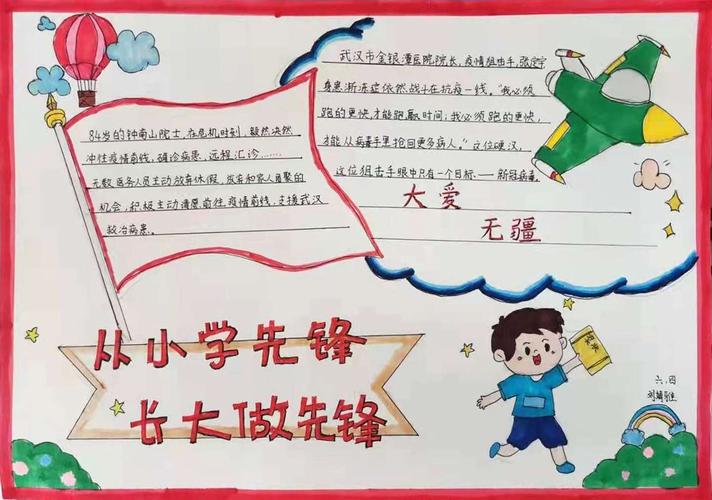 84岁的钟南山院士,在危机时刻,毅然决然
冲往疫情前线,确诊病患,远程汇诊……
无数医务人员主动放弃休假,放弃和家人团聚的
机会,积极主动请愿前往疫情前线,支援武汉
救治病患。
武汉市金银潭医院院长,疫情狙击手,张定宇
身患渐冻症依然战斗在抗疫一线,“我必须
跑的更快,才能跑赢时间;我必须跑的更快,
才能从病毒手里抢回更多病人。”这位硬汉,
这位狙击手眼中只有一个目标——新冠病毒。
大爱
无疆
从小学先锋
长大做先锋
六.四